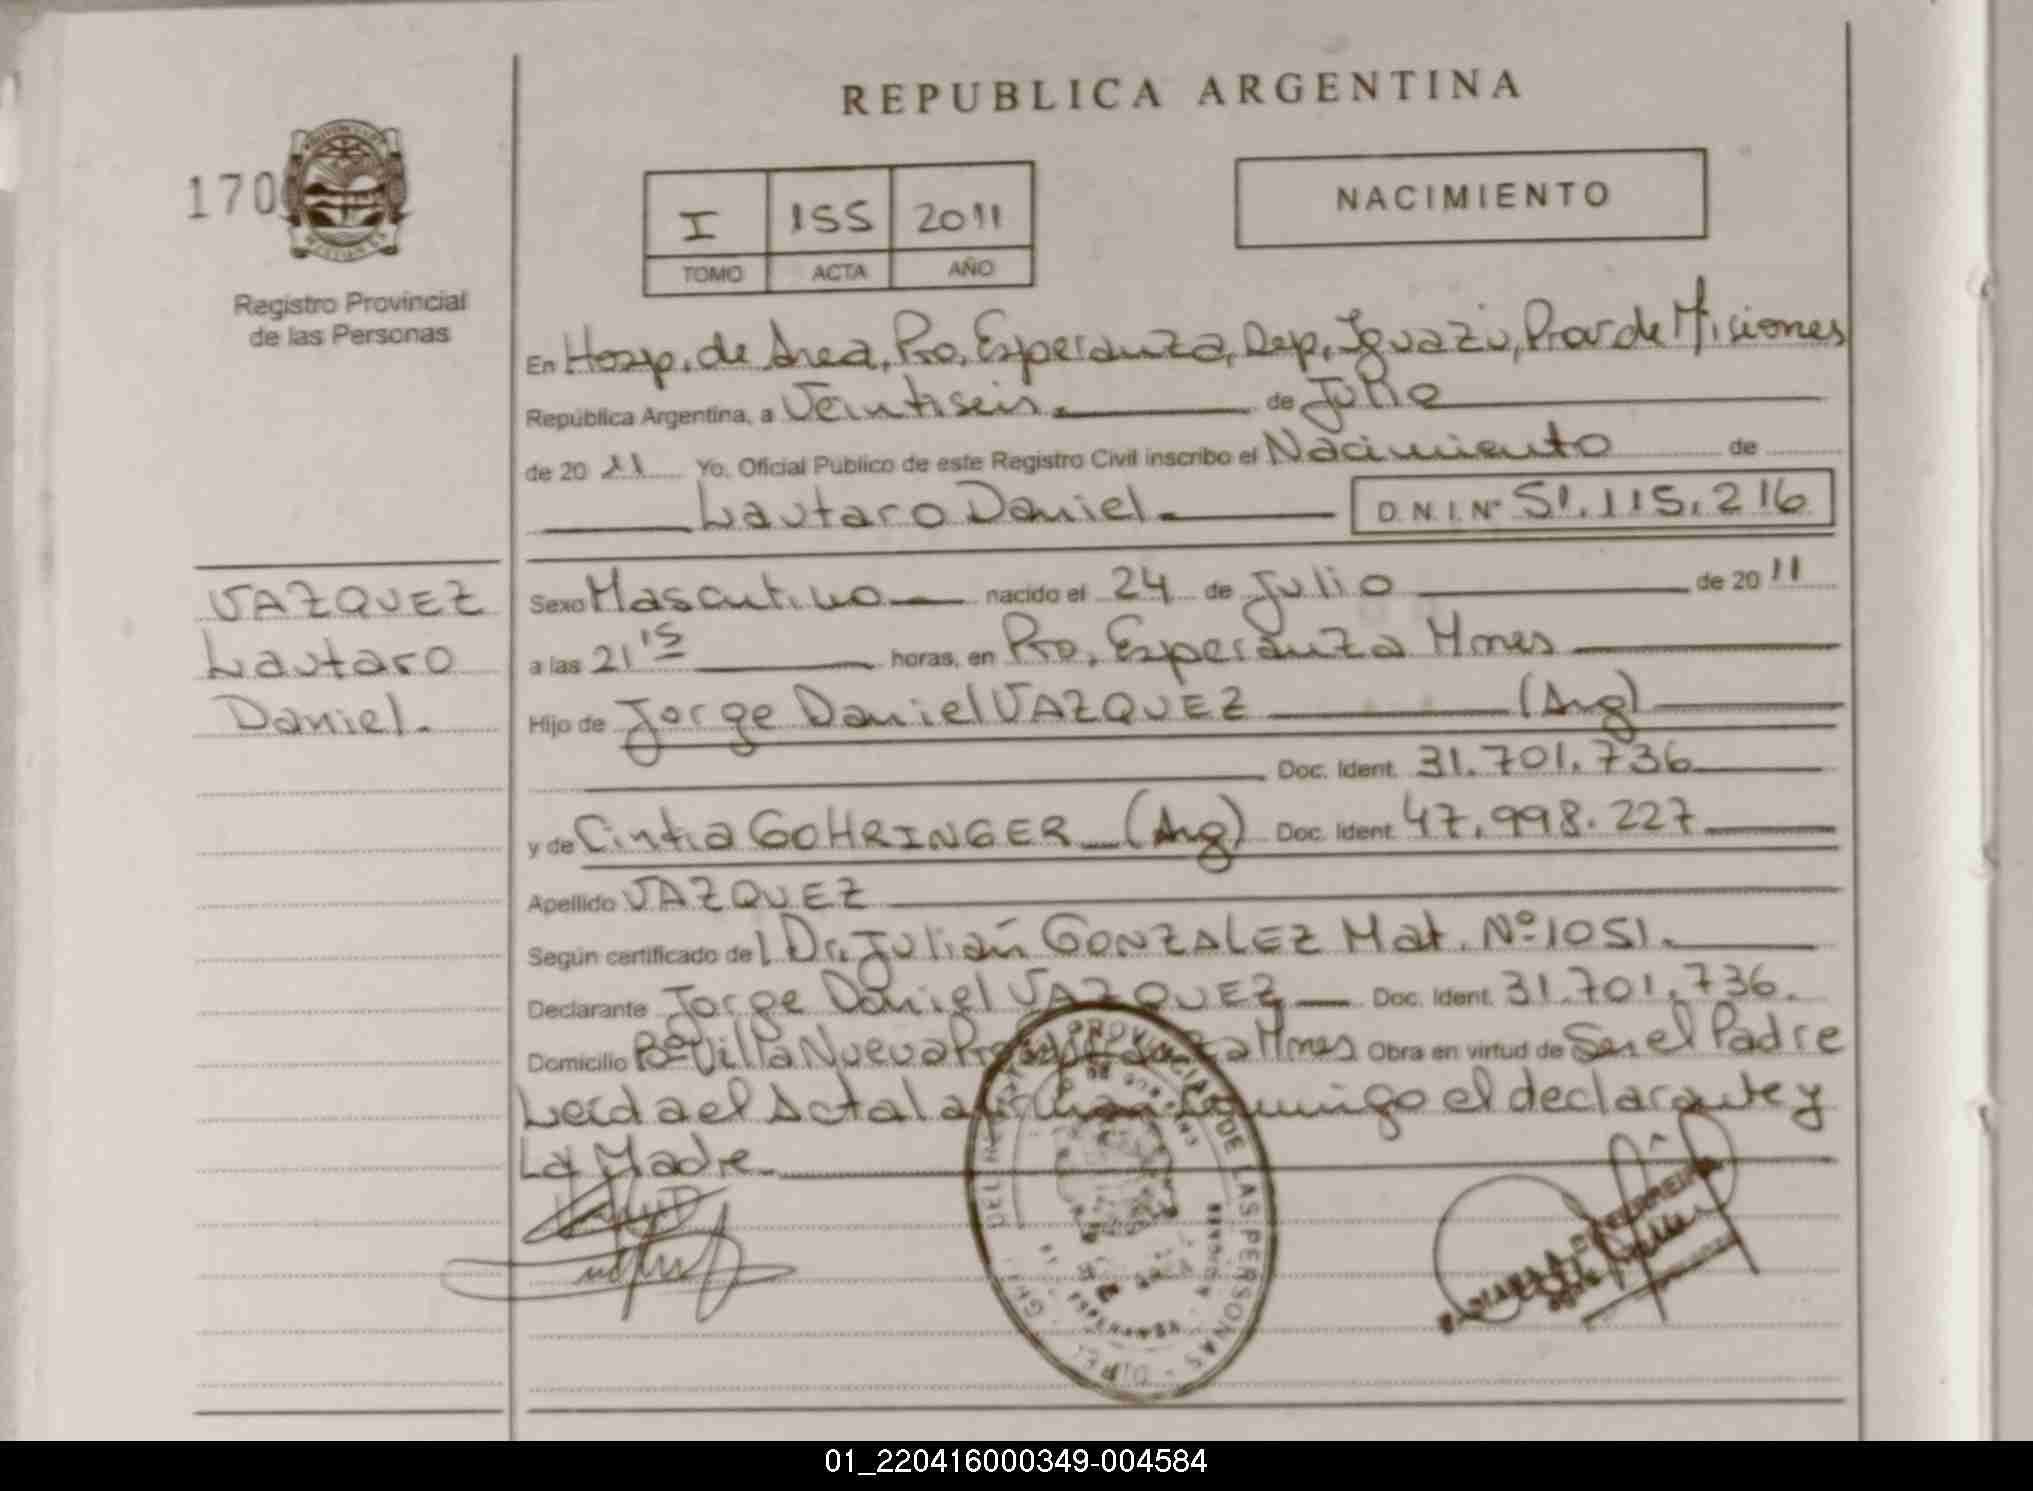 REPUBLICA ARGENTINA
170
NACIMIENTO
I 155 2011
TOMO ACTA AÑO
Registro Provincial
de las Personas
En Hosp. de Area, Pto. Esperanza, Dep. Iguazú, Prov de Misiones
República Argentina, a Veintiseis de Julio
de 20 11 Yo, Oficial Público de este Registro Civil inscribo el Nacimiento de
Lautaro Daniel. D.N.I. Nº 51.115.216
VAZQUEZ
Lautaro
Daniel.
Sexo Masculino nacido el 24 de Julio de 20 11
a las 21 15 horas, en Pto. Esperanza Mnes
Hijo de Jorge Daniel VAZQUEZ (Arg)
Doc. Ident. 31.701.736
y de Cintia GOHRINGER (Arg) Doc. Ident. 47.998.227
Apellido VAZQUEZ
Según certificado del Dr. Julián GONZALEZ Mat. Nº 1051.
Declarante Jorge Daniel VAZQUEZ Doc. Ident. 31.701.736.
Domicilio Bº Villa Nueva Pto Esperanza Mnes Obra en virtud de Ser el Padre
Leída el Acta la firman conmigo el declarante y
La Madre.
PROVINCIAL DE LAS PERSONAS
ESPERANZA
01_220416000349-004584